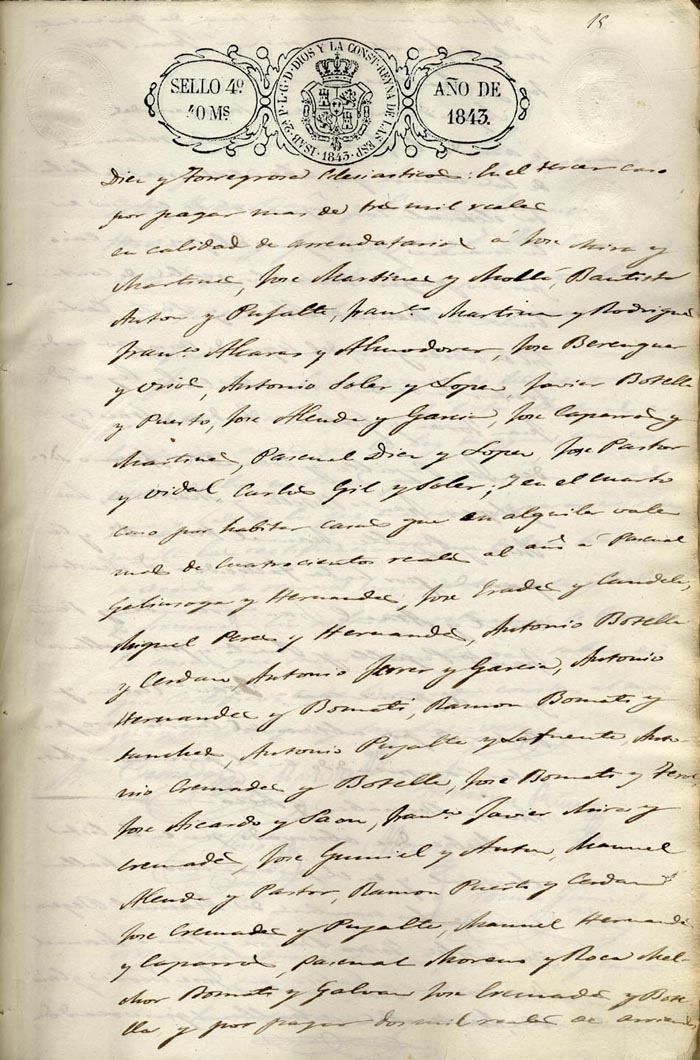 15
SELLO 4º
40 Ms
ISAB. 2ª P. L. G. D. DIOS Y LA CONST. REYNA DE LAS ESP. 1843.
AÑO DE
1843.
Diez y Torregrosa Eclesiastico: En el tercer caso
por pagar mas de tres mil reales
en calidad de arrendatarios á Jose Mira y
Martinez, Jose Martinez y Mollá, Bautista
Anton y Pujalte, Franco Martinez y Rodriguez
Franco Alcaraz y Almodovar, Jose Berenguer
y Antonio Soler y Lopez, Javier Botella
y Puerto, Jose Alenda y Garcia, Jose Caparros y
Martinez, Pascual Diez y Lopez, Jose Pastor
y Vidal, Carlos Gil y Soler; y en el cuarto
caso por habitar casas que en alquiler vale
mas de cuatrocientos reales al año á Pascual
y Hernandez, Jose Prades y Candela,
Miguel Perez y Hernandez, Antonio Botella
y Cerdan, Antonio Ferrer y Garcia, Antonio
Hernandez y Bomati, Ramon Bomati y
Sanchez, Antonio Pujalte y Lafuente, Anto-
nio Cremades y Botella, Jose Bomati y
Jose Ricardo y Franco Javier Mira y
Cremades, Jose Gumiel y Anton, Manuel
Alenda y Pastor, Ramon Puerto y Cerdan
Jose Cremades y Pujalte, Manuel Hernandez
y Caparros, Pascual Moreno y Roca Mel-
chor Bomati y Galvan Jose Cremades y Bote-
lla y por pagar dos mil reales de arriendo